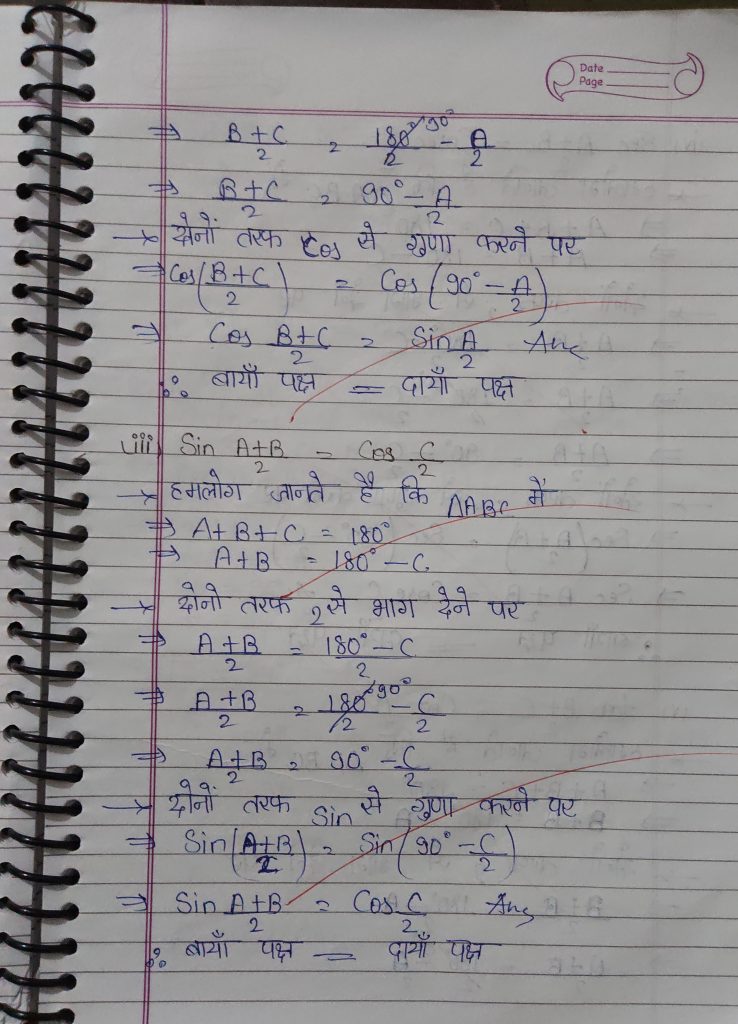 Date
Page
⇒ B+C/2 = 180°/2 90° - A/2
⇒ B+C/2 = 90° - A/2
→ दोनों तरफ Cos से गुणा करने पर
⇒ Cos(B+C/2) = Cos(90° - A/2)
⇒ Cos B+C/2 = Sin A/2 Ans
∴ बायाँ पक्ष = दायाँ पक्ष
viii) Sin A+B/2 = Cos C/2
→ हमलोग जानते है कि △ABC में
⇒ A+B+C = 180°
⇒ A+B = 180° - C
→ दोनो तरफ 2 से भाग देने पर
⇒ A+B/2 = 180° - C/2
⇒ A+B/2 = 180°/2 90° - C/2
⇒ A+B/2 = 90° - C/2
→ दोनों तरफ Sin से गुणा करने पर
⇒ Sin(A+B/2) = Sin(90° - C/2)
⇒ Sin A+B/2 = Cos C/2 Ans
∴ बायाँ पक्ष = दायाँ पक्ष